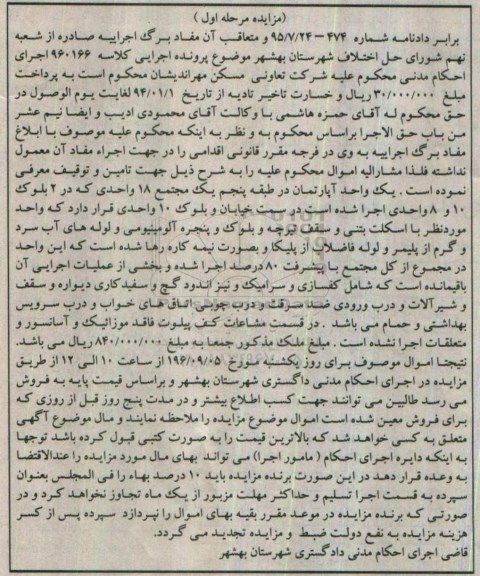 (مزایده مرحله اول )
برابر دادنامه شماره ۴۷۴ – ۹۵/۷/۲۴ و متعاقب آن مفاد برگ اجراییه صادره از شعبه
نهم شورای حل اختلاف شهرستان بهشهر موضوع پرونده اجرایی کلاسه ۹۶۰۱۶۶ اجرای
احکام مدنی محکوم علیه شرکت تعاونی مسکن مهراندیشان محکوم است به پرداخت
مبلغ ۳۰/۰۰۰/۰۰۰ ریال و خسارت تاخیر تادیه از تاریخ ۹۴/۰۱/۱ لغایت یوم الوصول در
حق محکوم له آقای حمزه هاشمی با وکالت آقای محمودی ادیب و ایضا نیم عشر
من باب حق الاجرا براساس محکوم به و نظر به اینکه محکوم علیه موصوف با ابلاغ
مفاد برگ اجراییه به وی در فرجه مقرر قانونی اقدامی را در جهت اجراء مفاد آن معمول
نداشته فلذا مشارالیه اموال محکوم علیه را به شرح ذیل جهت تامین و توقیف معرفی
نموده است . یک واحد آپارتمان در طبقه پنجم یک مجتمع ۱۸ واحدی که در ۲ بلوک
۱۰ و ۸ واحدی اجرا شده است در سمت خیابان و بلوک ۱۰ واحدی قرار دارد که واحد
موردنظر با اسکلت بتنی و سقف تیرچه و بلوک و پنجره آلومینیومی و لوله های آب سرد
و گرم از پلیمر و لوله فاضلاب از پلیکا و بصورت نیمه کاره رها شده است که این واحد
در مجموع از کل مجتمع با پیشرفت ۸۰ درصد اجرا شده و بخشی از عملیات اجرایی آن
باقیمانده است که شامل کفسازی و سرامیک و نیز اندود گچ و سفیدکاری دیواره و سقف
و شیرآلات و درب ورودی ضد سرقت و درب چوبی اتاق های خواب و درب سرویس
بهداشتی و حمام می باشد . در قسمت مشاعات کف پیلوت فاقد موزائیک و آسانسور و
متعلقات اجرا نشده است . مبلغ ملک مذکور جمعا به مبلغ ۸۴۰/۰۰۰/۰۰۰ ریال می باشد.
نتیجتا اموال موصوف برای روز یکشنبه مورخ ۱۹۶/۰۹/۰۵ از ساعت ۱۰ الی ۱۲ از طریق
مزایده در اجرای احکام مدنی داگستری شهرستان بهشهر و براساس قیمت پایه به فروش
می رسد طالبین می توانند جهت کسب اطلاع بیشتر و در مدت پنج روز قبل از روزی که
برای فروش معین شده است اموال موضوع مزایده را ملاحظه نمایند و مال موضوع آگهی
متعلق به کسی خواهد شد که بالاترین قیمت را به صورت کتبی قبول کرده باشد توجها
به اینکه دایره اجرای احکام ( مامور اجرا) می تواند بهای مال مورد مزایده را عندالاقتضا
به وعده قرار دهد در این صورت برنده مزایده باید ۱۰ درصد بهاء را فی المجلس بعنوان
سپرده به قسمت اجرا تسلیم و حداکثر مهلت مزبور از یک ماه تجاوز نخواهد کرد و در
صورتی که برنده مزایده در موعد مقرر بقیه بهای اموال را نپردازد سپرده پس از کسر
هزینه مزایده به نفع دولت ضبط و مزایده تجدید می گردد.
قاضی اجرای احکام مدنی دادگستری شهرستان بهشهر